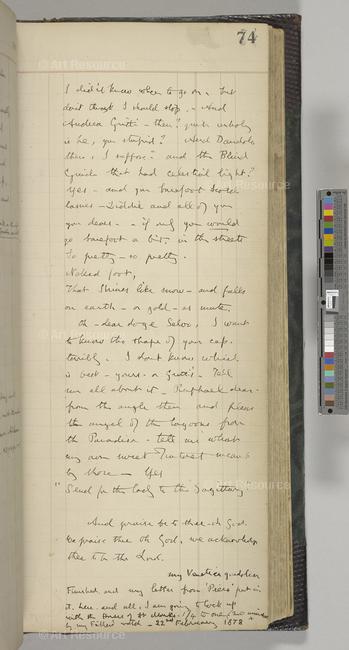 74
I didn't know when to go on - but
don't think I should stop. - And
Andrea Gritti - then? quite unholy
is he, you stupid? And Dandolo
then, I suppose - and the Blind
Guide that had celestial light?
Yes - and you barefoot Scotch
lasses - Diddie and all of you
you dears - - if only you would
go barefoot a bit, in the streets
So pretty - so pretty.
Naked foot,
That Shines like snow - and falls
on earth - or gold - as mute.
Oh - dear doge Selvo, I want
to know the shape of your cap.
terribly. I don't know which
is best - yours - or Gritti's - Tell
me all about it - Raphael dear -
from the angle then and please
the angel of the lagoons from
the Paradise - tell me what
my own sweet meant
by those — Yes
"Send for the lady to the Sagittary"
And praise be to thee oh God.
We praise thee Oh God, we acknowledge
thee to be the Lord.
my Venetian
Finished and my letter from 'Piero' put in
it, here. and all, I am going to lock up
with the horses of St Marks. 1/4 to one
by my Father's watch - 22nd February 1878